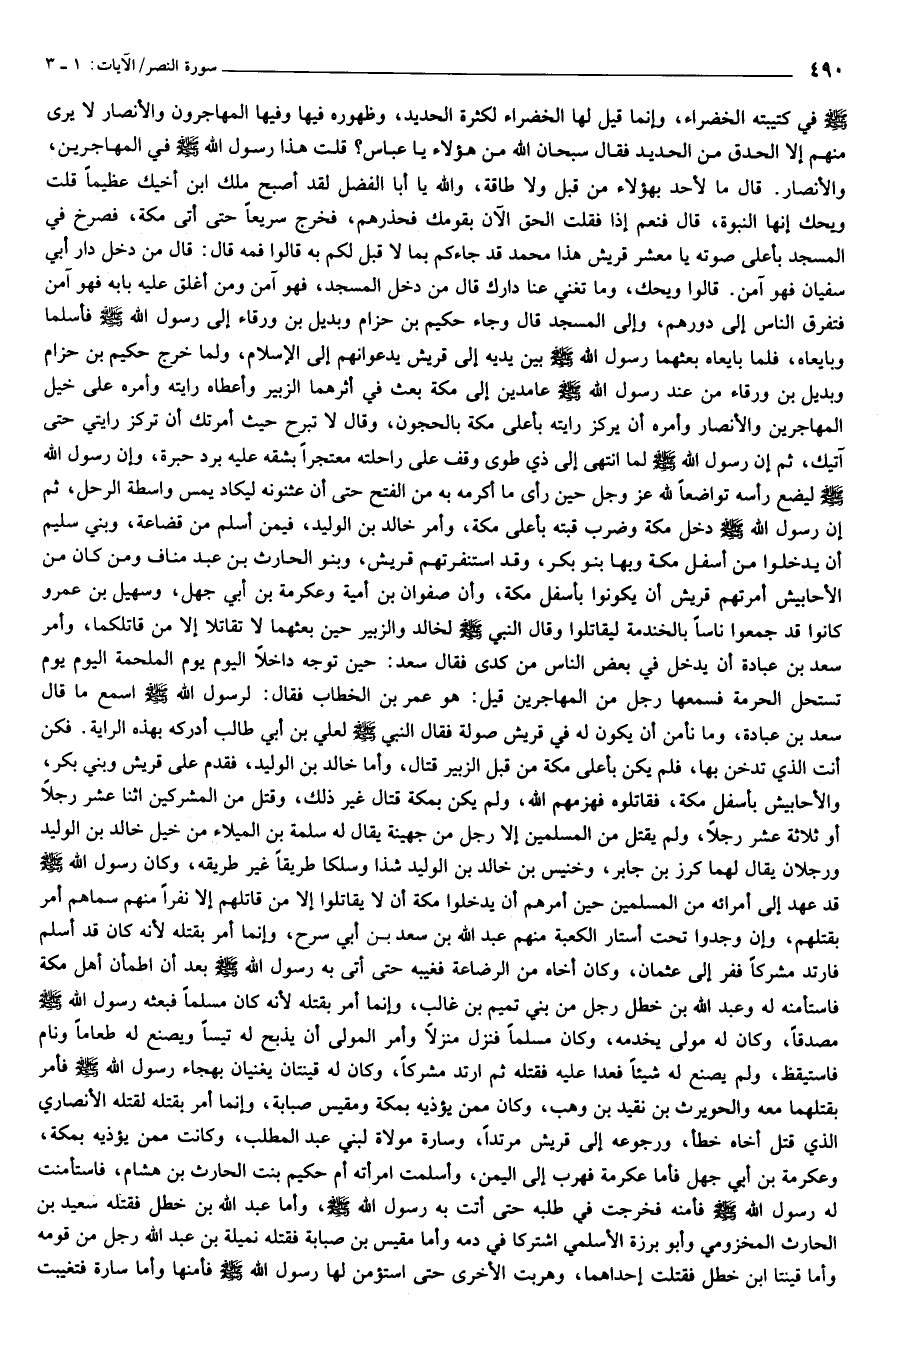 ٤٩٠ سورة النصر/ الآيات: ١ ـ ٣
ﷺ في كتيبته الخضراء، وإنما قيل لها الخضراء لكثرة الحديد، وظهوره فيها وفيها المهاجرون والأنصار لا يرى
منهم إلا الحدق من الحديد فقال سبحان الله من هؤلاء يا عباس؟ قلت هذا رسول الله ﷺ في المهاجرين،
والأنصار. قال ما لأحد بهؤلاء من قبل ولا طاقة، والله يا أبا الفضل لقد أصبح ملك ابن أخيك عظيماً قلت
ويحك إنها النبوة، قال فنعم إذا فقلت الحق الآن بقومك فحذرهم، فخرج سريعاً حتى أتى مكة، فصرخ في
المسجد بأعلى صوته يا معشر قريش هذا محمد قد جاءكم بما لا قبل لكم به قالوا فمه قال: قال من دخل دار أبي
سفيان فهو آمن. قالوا ويحك، وما تغني عنا دارك قال من دخل المسجد، فهو آمن ومن أغلق عليه بابه فهو آمن
فتفرق الناس إلى دورهم، وإلى المسجد قال وجاء حكيم بن حزام وبديل بن ورقاء إلى رسول الله ﷺ فأسلما
وبايعاه، فلما بايعاه بعثهما رسول الله ﷺ بين يديه إلى قريش يدعوانهم إلى الإسلام، ولما خرج حكيم بن حزام
وبديل بن ورقاء من عند رسول الله ﷺ عامدين إلى مكة بعث في أثرهما الزبير وأعطاه رايته وأمره على خيل
المهاجرين والأنصار وأمره أن يركز رايته بأعلى مكة بالحجون، وقال لا تبرح حيث أمرتك أن تركز رايتي حتى
آتيك، ثم إن رسول الله ﷺ لما انتهى إلى ذي طوى وقف على راحلته معتجراً بشقه عليه برد حبرة، وإن رسول الله
ﷺ ليضع رأسه تواضعاً لله عز وجل حين رأى ما أكرمه به من الفتح حتى أن عثنونه ليكاد يمس واسطة الرحل، ثم
إن رسول الله ﷺ دخل مكة وضرب قبته بأعلى مكة، وأمر خالد بن الوليد، فيمن أسلم من قضاعة، وبني سليم
أن يدخلوا من أسفل مكة وبها بنو بكر، وقد استنفرتهم قريش، وبنو الحارث بن عبد مناف ومن كان من
الأحابيش أمرتهم قريش أن يكونوا بأسفل مكة، وأن صفوان بن أمية وعكرمة بن أبي جهل، وسهيل بن عمرو
كانوا قد جمعوا ناساً بالخندمة ليقاتلوا وقال النبي ﷺ لخالد والزبير حين بعثهما لا تقاتلا إلا من قاتلكما، وأمر
سعد بن عبادة أن يدخل في بعض الناس من كدى فقال سعد: حين توجه داخلاً اليوم يوم الملحمة اليوم يوم
تستحل الحرمة فسمعها رجل من المهاجرين قيل: هو عمر بن الخطاب فقال: لرسول الله ﷺ اسمع ما قال
سعد بن عبادة، وما نأمن أن يكون له في قريش صولة فقال النبي ﷺ لعلي بن أبي طالب أدركه بهذه الراية. فكن
أنت الذي تدخن بها، فلم يكن بأعلى مكة من قبل الزبير قتال، وأما خالد بن الوليد، فقدم على قريش وبني بكر،
والأحابيش بأسفل مكة، فقاتلوه فهزمهم الله، ولم يكن بمكة قتال غير ذلك، وقتل من المشركين اثنا عشر رجلاً
أو ثلاثة عشر رجلًا، ولم يقتل من المسلمين إلا رجل من جهينة يقال له سلمة بن الميلاء من خيل خالد بن الوليد
ورجلان يقال لهما كرز بن جابر، وخنيس بن خالد بن الوليد شذا وسلكا طريقاً غير طريقه، وكان رسول الله ﷺ
قد عهد إلى أمرائه من المسلمين حين أمرهم أن يدخلوا مكة أن لا يقاتلوا إلا من قاتلهم إلا نفراً منهم سماهم أمر
بقتلهم، وإن وجدوا تحت أستار الكعبة منهم عبد الله بن سعد بن أبي سرح، وإنما أمر بقتله لأنه كان قد أسلم
فارتد مشركاً ففر إلى عثمان، وكان أخاه من الرضاعة فغيبه حتى أتى به رسول الله ﷺ بعد أن اطمأن أهل مكة
فاستأمنه له وعبد الله بن خطل رجل من بني تميم بن غالب، وإنما أمر بقتله لأنه كان مسلماً فبعثه رسول الله ﷺ
مصدقاً، وكان له مولى يخدمه، وكان مسلماً فنزل منزلاً وأمر المولى أن يذبح له تيساً ويصنع له طعاماً ونام
فاستيقظ، ولم يصنع له شيئاً فعدا عليه فقتله ثم ارتد مشركاً، وكان له قينتان يغنيان بهجاء رسول الله ﷺ فأمر
بقتلهما معه والحويرث بن نقيد بن وهب، وكان ممن يؤذيه بمكة ومقيس صبابة، وإنما أمر بقتله لقتله الأنصاري
الذي قتل أخاه خطأ، ورجوعه إلى قريش مرتداً، وسارة مولاة لبني عبد المطلب، وكانت ممن يؤذيه بمكة،
وعكرمة بن أبي جهل فأما عكرمة فهرب إلى اليمن، وأسلمت امرأته أم حكيم بنت الحارث بن هشام، فاستأمنت
له رسول الله ﷺ فأمنه فخرجت في طلبه حتى أتت به رسول الله ﷺ، وأما عبد الله بن خطل فقتله سعيد بن
الحارث المخزومي وأبو برزة الأسلمي اشتركا في دمه وأما مقيس بن صبابة فقتله نميلة بن عبد الله رجل من قومه
وأما قينتا ابن خطل فقتلت إحداهما، وهربت الأخرى حتى استؤمن لها رسول الله ﷺ فأمنها وأما سارة فتغيبت